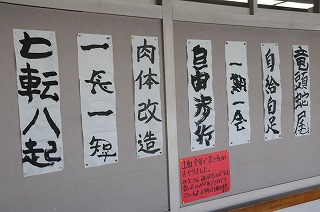 七転八起
一長一短
肉体改造
自由歩行
一期一会
自給自足
竜頭蛇尾